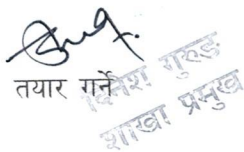 तयार गर्ने
दिनेश गुरुङ
शाखा प्रमुख